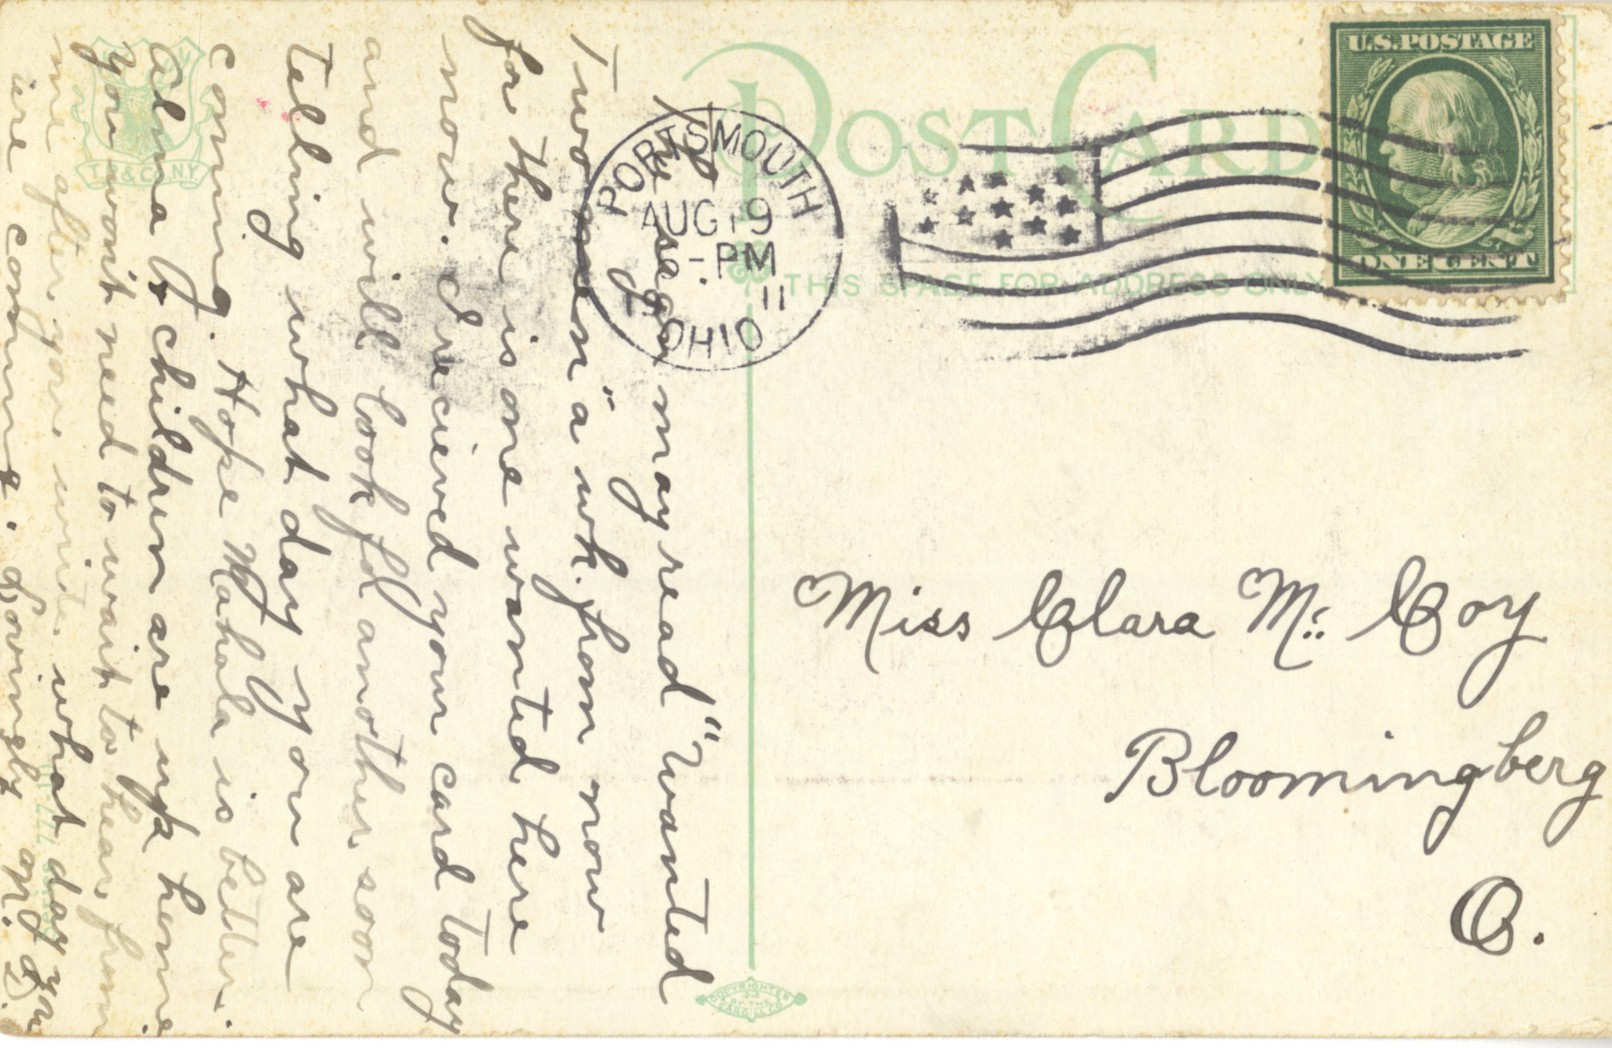 POST CARD
THIS SPACE FOR ADDRESS ONLY
U.S. POSTAGE
ONE CENT
PORTSMOUTH
AUG 19
6 - PM
11
OHIO
Miss Clara Mc Coy
Bloomingberg
O.
The sign may read "Wanted
Two men" a wk. from now
for there is one wanted here
now. I recieved your card today
and will look fd another soon
telling what day you are
coming. Hope Mahala is better.
Alma & children are up home
you won't need to wait to hear from
me after you write what day you
are coming. Lovingly M. D.
T. P. & CO. N.Y.
COPYRIGHTED
BY THE
CARGILL CO.